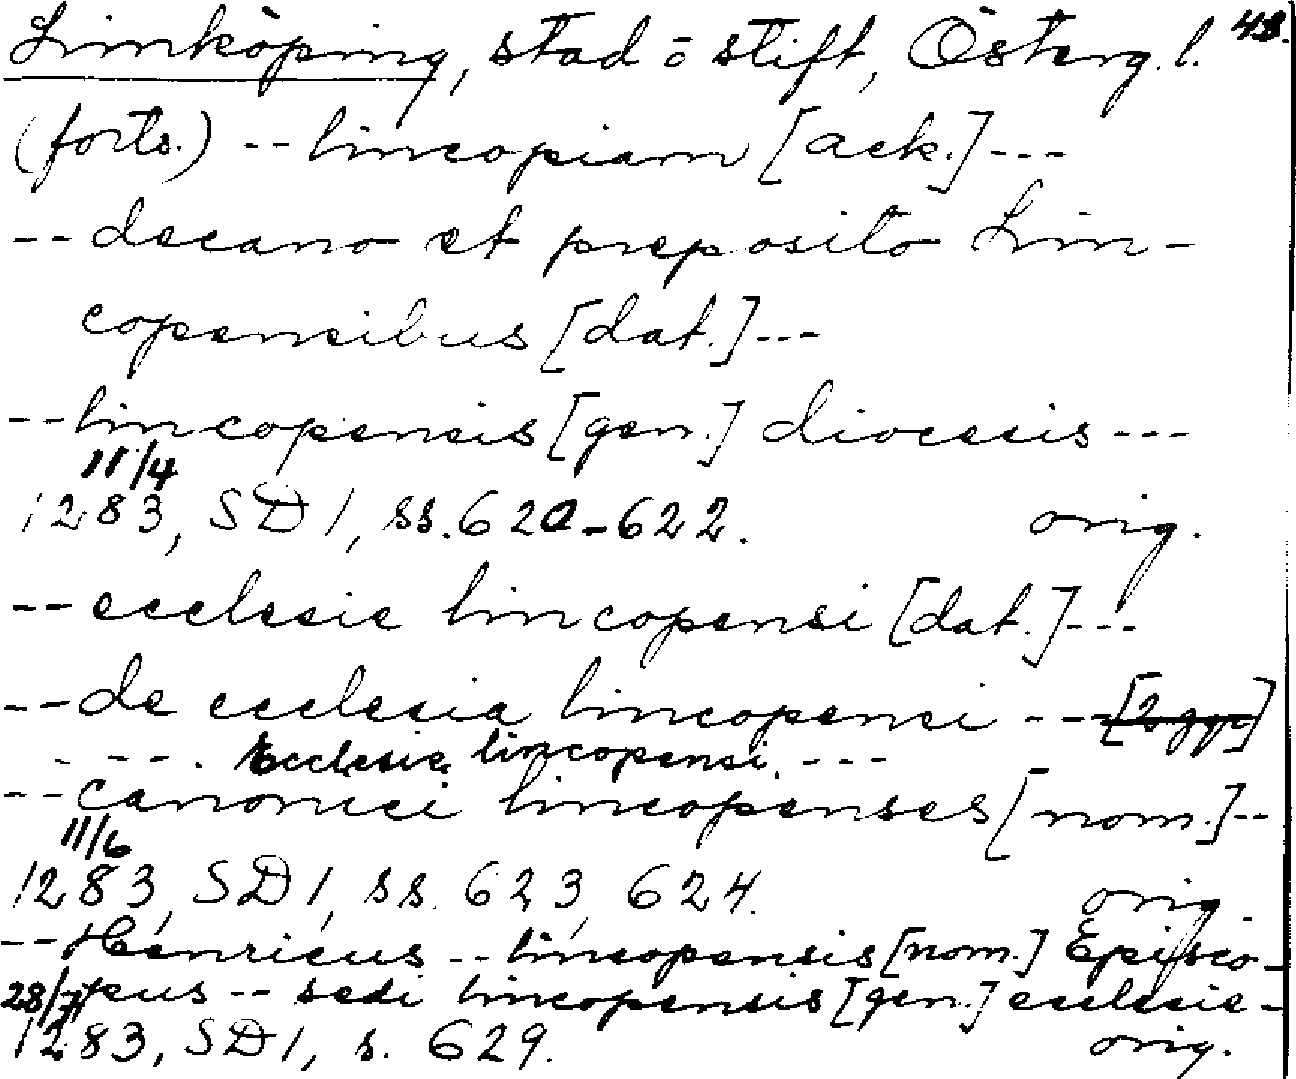 Linköping, stad o stift, Österg. l. 48.
(forts.) -- lincopiam [ack.] ---
-- decano et preposito Lin-
copensibus [dat.] ---
-- lincopensis [gen.] diocesis ---
11/4
1283, SD 1, ss. 620-622. orig.
-- ecclesie lincopensi [dat.] ---
-- de ecclesia lincopensi --- [2 ggr]
- --- . Ecclesie lincopensi. ---
-- canonici lincopenses [nom.] --
11/6
1283, SD 1, ss. 623, 624. orig.
-- Henricus -- lincopensis [nom.] Episco-
pus -- sedi lincopensis [gen.] ecclesie -
1283, SD 1, s. 629. orig.